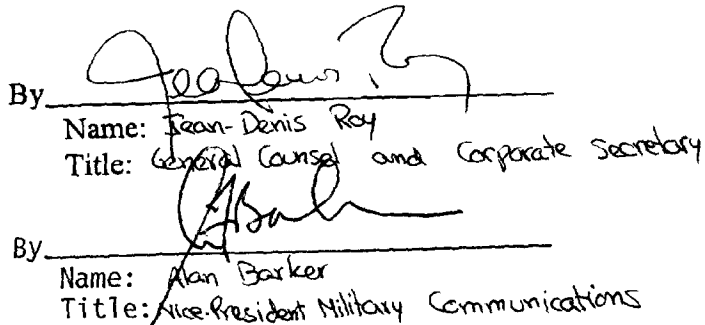 By
Name: Jean-Denis Roy
Title: General Counsel and Corporate Secretary
By
Name: Alan Barker
Title: Vice-President Military Communications